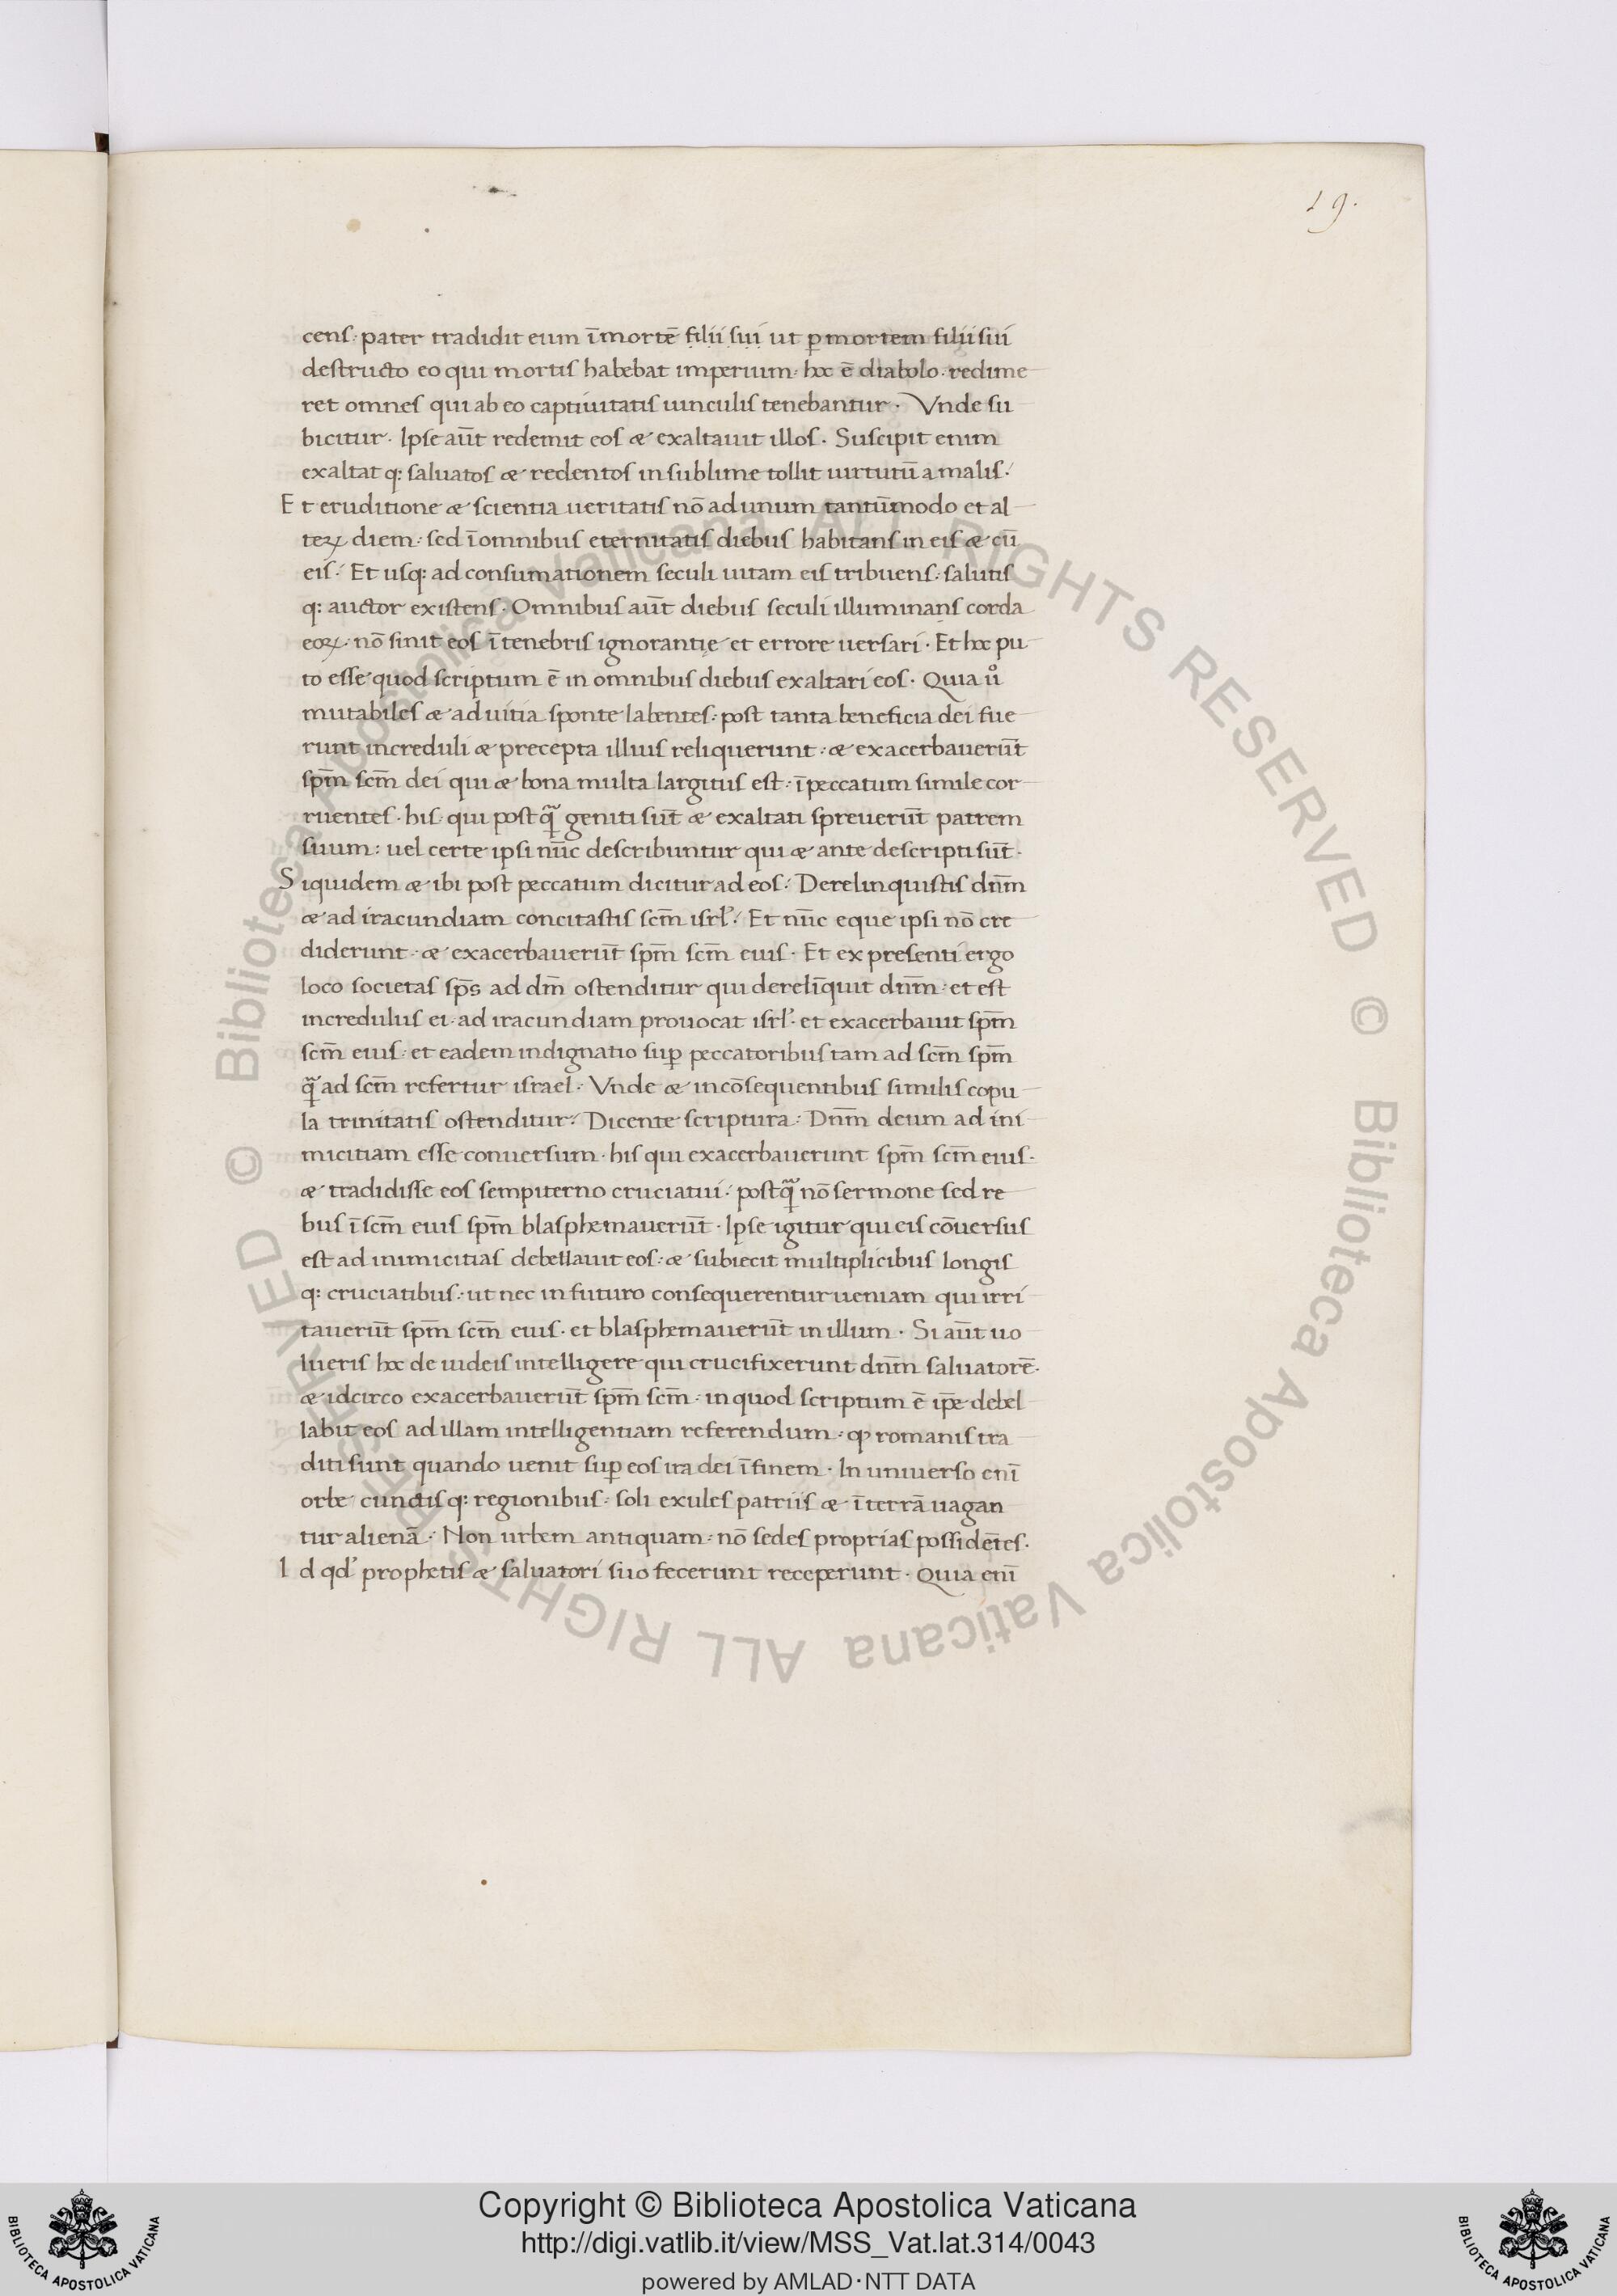 19.
cens· pater tradidit eum ī morte᷎ filii sui ut ꝑ mortem filii sui
destructo eo qui mortis habebat imperium· hoc ē diabolo· redime
ret omnes qui ab eo captiuitatis uinculis tenebantur· Vnde su
bicitur· Ipse aūt redemit eos æ exaltauit illos· Suscipit enim
exaltat q: saluatos æ redentos in sublime tollit uirtutū a malis·
Et eruditione æ scientia ueritatis nō ad unum tantūmodo et al
teꝝ diem· sed ī omnibus eternitatis diebus habitans in eis æ cū
eis· Et usq: ad consumationem seculi uitam eis tribuens· salutis
q: auctor existens· Omnibus aūt diebus seculi illuminans corda
eoꝝ· nō sinit eos ī tenebris ignorantię et errore uersari· Et hoc pu
to esse quod scriptum ē in omnibus diebus exaltari eos· Quia uͦ
mutabiles æ ad uitia sponte labentes· post tanta beneficia dei fue
runt increduli æ precepta illius reliquerunt· æ exacerbauerūt
spm̄ scm̄ dei qui æ bona multa largitus est· ī peccatum simile cor
ruentes· his· qui postq̄ geniti sūt æ exaltati spreuerūt patrem
suum: uel certe ipsi nūc describuntur qui æ ante descripti sūt·
Siquidem æ ibi post peccatum dicitur ad eos· Derelinquistis dnm̄
æ ad iracundiam concitastis scm̄ isrl̓· Et nūc eque ipsi nō cre
diderunt· æ exacerbauerūt spm̄ scm̄ eius· Et ex presenti ergo
loco societas sp̄s ad dm̄ ostenditur qui derelīquit dnm̄· et est
incredulus ei· ad iracundiam prouocat isrl̓· et exacerbauit spm̄
scm̄ eius· et eadem indignatio suꝑ peccatoribus tam ad scm̄ spm̄
q̄ ad scm̄ refertur israel· Vnde æ in cōsequentibus similis copu
la trinitatis ostenditur· Dicente scriptura· Dnm̄ deum ad ini
micitiam esse conuersum· his qui exacerbauerunt spm̄ scm̄ eius·
æ tradidisse eos sempiterno cruciatui· postq̄ nō sermone sed re
bus ī scm̄ eius spm̄ blasphemauerūt· Ipse igitur qui eis cōuersus
est ad inimicitias debellauit eos· æ subiecit multiplicibus longis
q: cruciatibus· ut nec in futuro consequerentur ueniam qui irri
tauerūt spm̄ scm̄ eius· et blasphemauerūt in illum· Si aūt uo
lueris hoc de iudeis intelligere qui crucifixerunt dnm̄ saluatorē·
æ idcirco exacerbauerūt spm̄ scm̄· in quod scriptum ē ip̄e debel
labit eos ad illam intelligentiam referendum· ꝙ romanis tra
diti sunt quando uenit suꝑ eos ira dei ī finem· In uniuerso enī
orbe cunctis q: regionibus· soli exules patriis æ ī terrā uagan
tur alienā· Non urbem antiquam· nō sedes proprias possidētes·
Id qd̓ prophetis æ saluatori suo fecerunt receperunt· Quia enī
© Biblioteca Apostolica Vaticana ALL RIGHTS RESERVED © Biblioteca Apostolica Vaticana ALL RIGHTS RESERVED
Copyright © Biblioteca Apostolica Vaticana
http://digi.vatlib.it/view/MSS_Vat.lat.314/0043
powered by AMLAD·NTT DATA
BIBLIOTECA APOSTOLICA VATICANA
BIBLIOTECA APOSTOLICA VATICANA